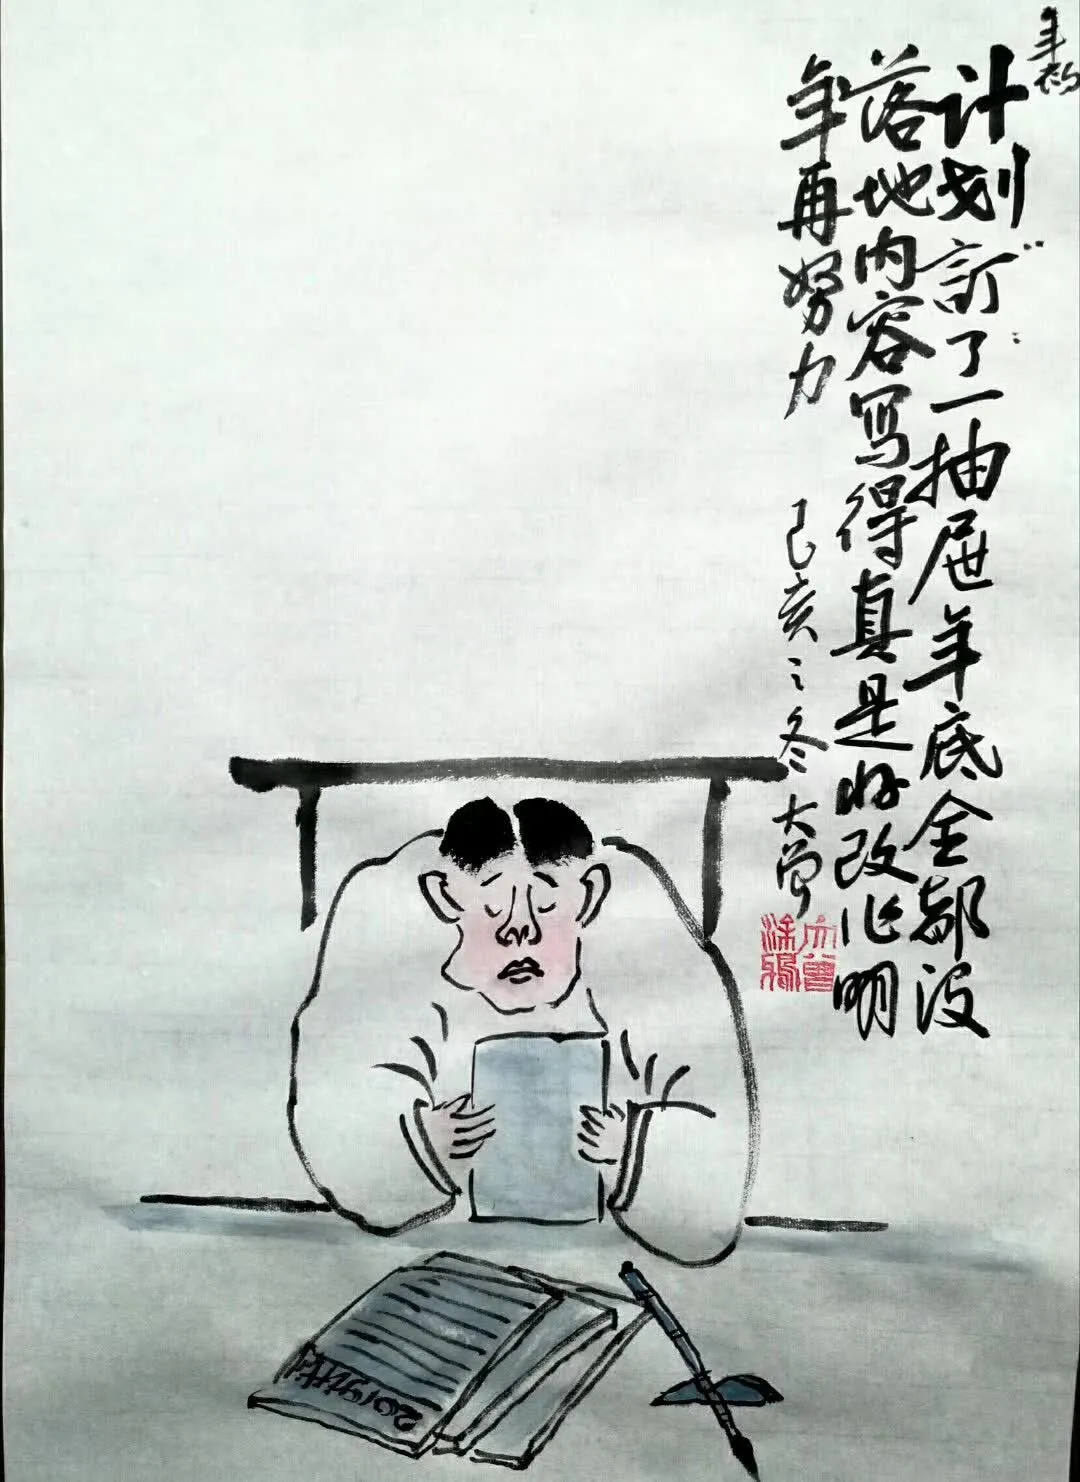 计划订了一抽屉年底全部没
落地内容写得真是好改作明
年再努力
己亥之冬 大曾
大曾
涂鸦
2019计划